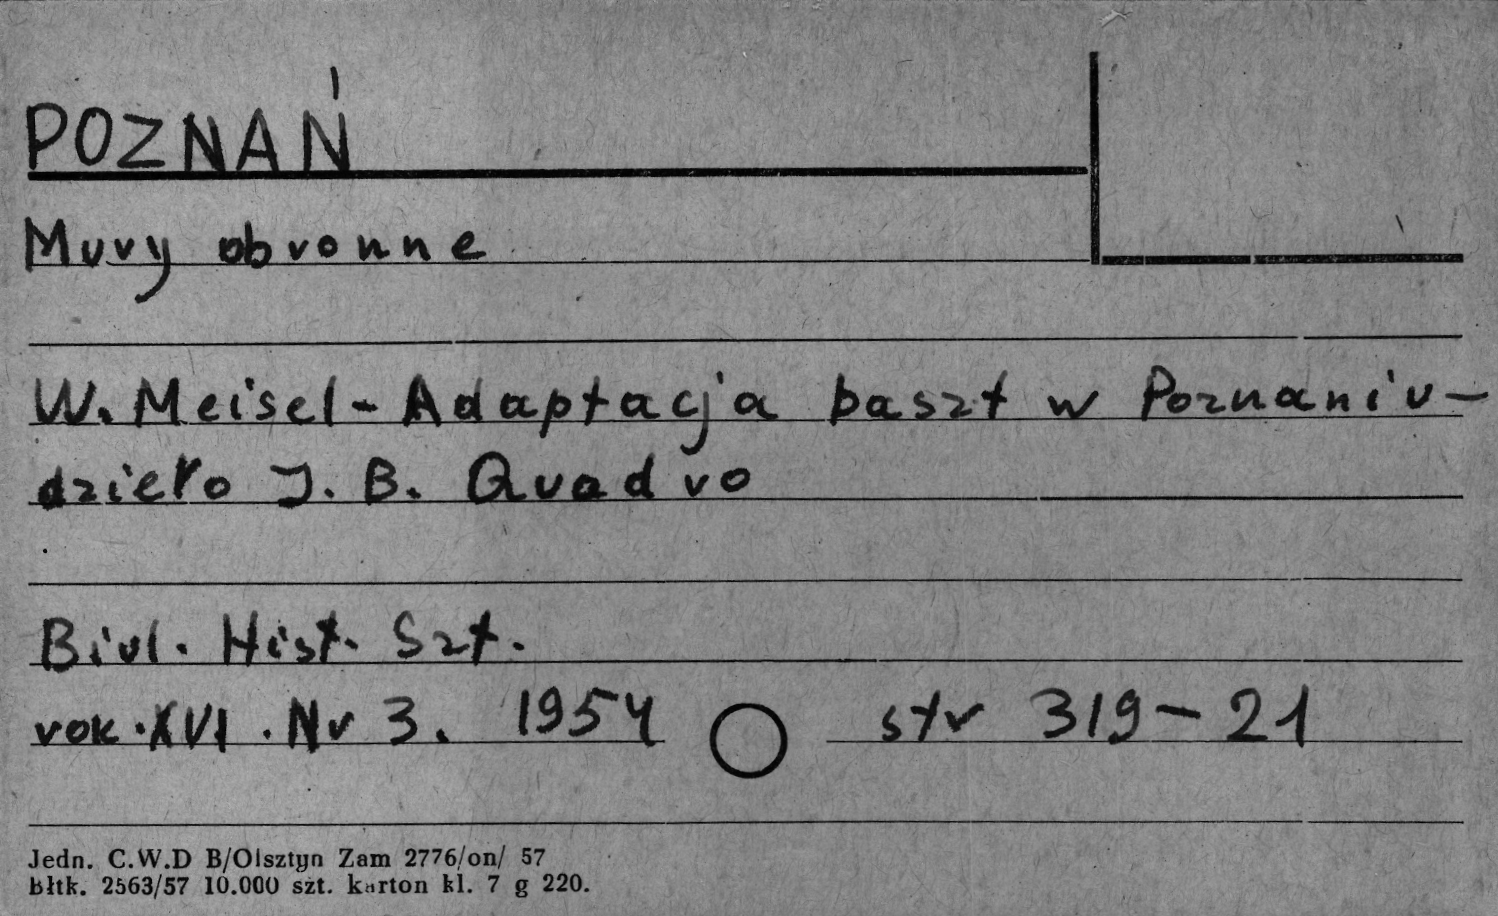 POZNAŃ
Mury obronne
W. Meisel - Adaptacja baszt w Poznaniu -
dzieło J. B. Quadro
Biul. Hist. Szt.
rok. XVI. Nr 3. 1954 str 319-21
Jedn. C.W.D B/Olsztyn Zam 2776/on/ 57
Błtk. 2563/57 10.000 szt. karton kl. 7 g 220.